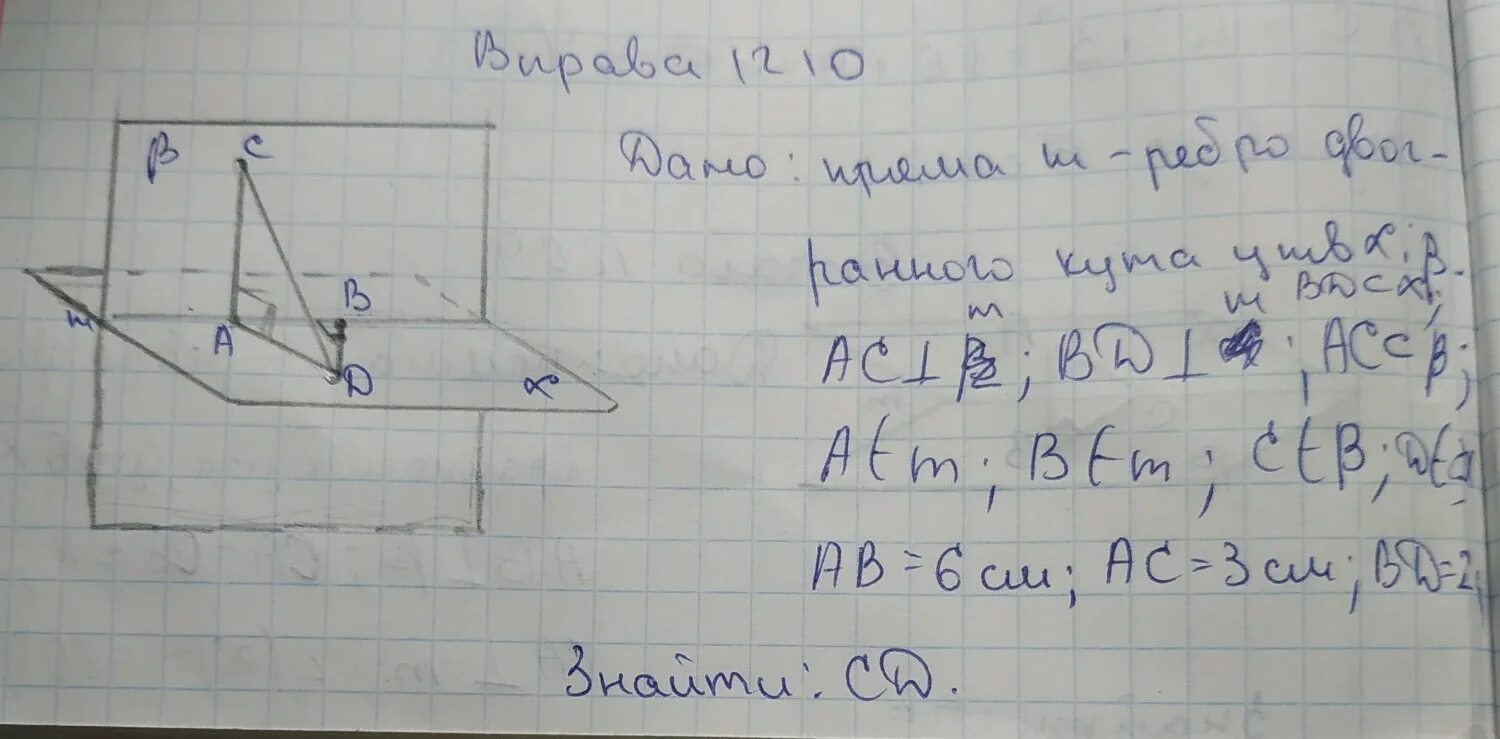 Вправа 1210
β C
Дано: пряма m – ребро двог-
ранного кута між α і β.
m m BD ⊂ α;
AC ⊥ ; BD ⊥ ; AC ⊂ β;
A ∈ m; B ∈ m; C ∈ β; D ∈
AB = 6 см; AC = 3 см; BD = 2
Знайти: CD.
m A B
D α